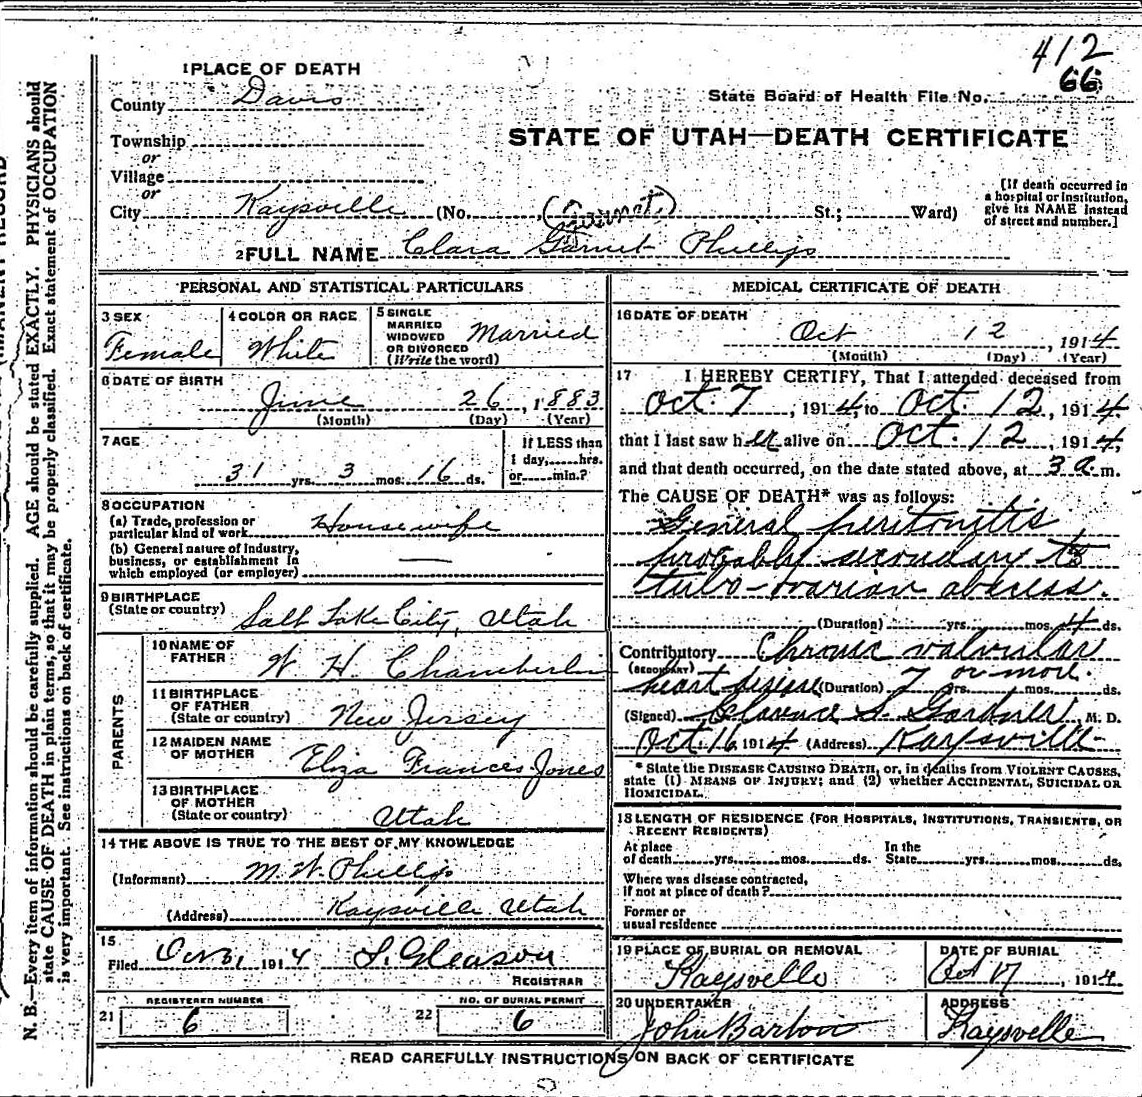 412
66
1 PLACE OF DEATH
County Davis
State Board of Health File No.
Township
or
Village
or
STATE OF UTAH—DEATH CERTIFICATE
City Kaysville (No. (Garnet) St.; Ward)
[If death occurred in a hospital or institution, give its NAME instead of street and number.]
2 FULL NAME Clara Garnet Phillips
PERSONAL AND STATISTICAL PARTICULARS
3 SEX
Female
4 COLOR OR RACE
White
5 SINGLE
MARRIED
WIDOWED
OR DIVORCED
(Write the word)
Married
6 DATE OF BIRTH
June 26, 1883
(Month) (Day) (Year)
7 AGE
31 yrs. 3 mos. 16 ds.
If LESS than
1 day,......hrs.
or......min.?
8 OCCUPATION
(a) Trade, profession or
particular kind of work Housewife
(b) General nature of industry,
business, or establishment in
which employed (or employer) —
9 BIRTHPLACE
(State or country) Salt Lake City, Utah
PARENTS
10 NAME OF
FATHER W. H. Chamberlin
11 BIRTHPLACE
OF FATHER
(State or country) New Jersey
12 MAIDEN NAME
OF MOTHER Eliza Frances Jones
13 BIRTHPLACE
OF MOTHER
(State or country) Utah
14 THE ABOVE IS TRUE TO THE BEST OF MY KNOWLEDGE
(Informant) M. W. Phillips
(Address) Kaysville Utah
15
Filed 1914 S. Gleason
REGISTRAR
21 REGISTERED NUMBER
6
22 NO. OF BURIAL PERMIT
6
MEDICAL CERTIFICATE OF DEATH
16 DATE OF DEATH
Oct 12, 1914
(Month) (Day) (Year)
17 I HEREBY CERTIFY, That I attended deceased from
Oct. 7, 1914, to Oct. 12, 1914
that I last saw her alive on Oct. 12, 1914,
and that death occurred, on the date stated above, at 3 a.m.
The CAUSE OF DEATH* was as follows:
General peritonitis
probably secondary to
tubo-ovarian abscess.
(Duration) yrs. mos. 4 ds.
Contributory Chronic valvular
(SECONDARY)
heart disease (Duration) 7 yrs. or more. mos. ds.
(Signed) Clarence S. Gardner, M. D.
Oct. 16, 1914 (Address) Kaysville
* State the DISEASE CAUSING DEATH, or, in deaths from VIOLENT CAUSES,
state (1) MEANS OF INJURY; and (2) whether ACCIDENTAL, SUICIDAL OR
HOMICIDAL.
18 LENGTH OF RESIDENCE (FOR HOSPITALS, INSTITUTIONS, TRANSIENTS, OR
RECENT RESIDENTS)
At place
of death......yrs......mos......ds.
In the
State......yrs......mos......ds.
Where was disease contracted,
if not at place of death?
Former or
usual residence
19 PLACE OF BURIAL OR REMOVAL
Kaysville
DATE OF BURIAL
Oct 17, 1914
20 UNDERTAKER
John Barton
ADDRESS
Kaysville
READ CAREFULLY INSTRUCTIONS ON BACK OF CERTIFICATE
N. B.—Every item of information should be carefully supplied. AGE should be stated EXACTLY. PHYSICIANS should
state CAUSE OF DEATH in plain terms, so that it may be properly classified. Exact statement of OCCUPATION
is very important. See instructions on back of certificate.